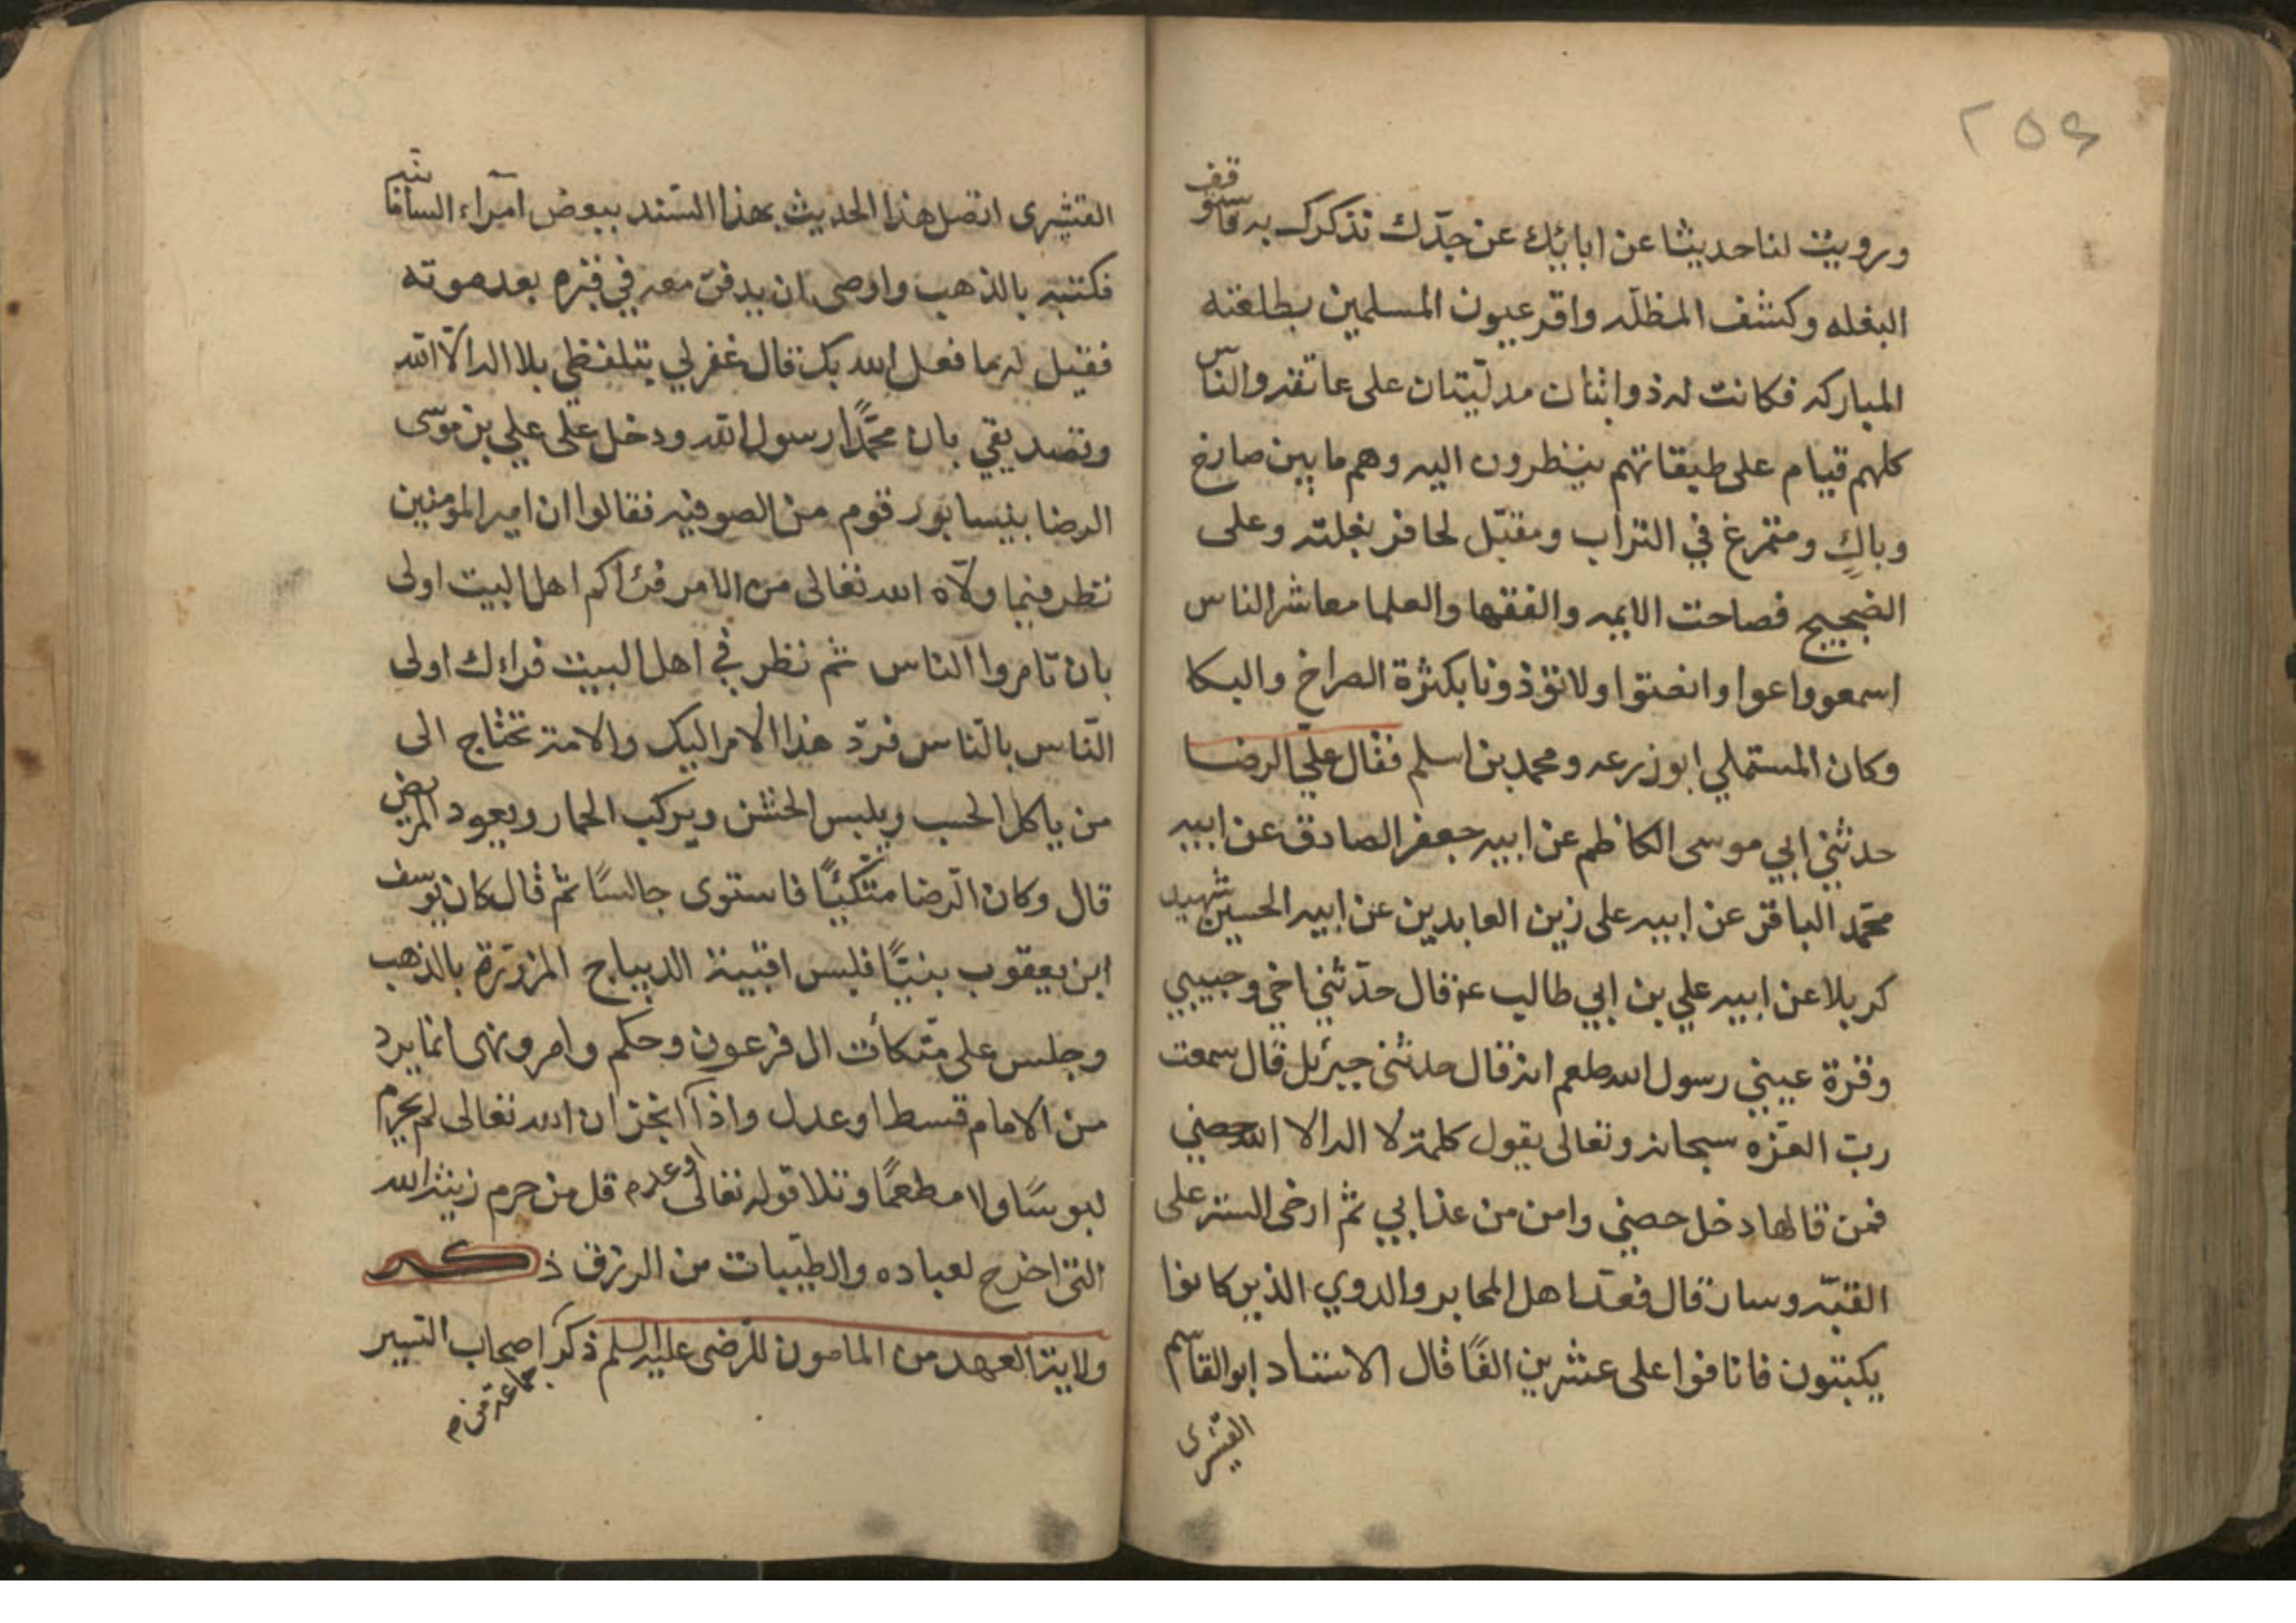 ٢٥٤
ورويت لنا حديثا عن ابائك عن جدّك نذكرك به فاستوقف
البغله وكشف المظلّه واقر عيون المسلمين بطلعته
المباركه فكانت له ذوابتان مدليّتان على عاتقه والناس
كلهم قيام على طبقاتهم ينظرون اليه وهم ما بين صارخ
وباكٍ ومتمرغ في التراب ومقبّل لحافر بغلته وعلى
الضجيج فصاحت الايمه والفقها والعلما معاشر الناس
اسمعو واعوا وانصتوا ولا تؤذونا بكثرة الصراخ والبكا
وكان المستملي ابو زرعه ومحمد بن اسلم فقال علي الرضا
حدثني ابي موسى الكاظم عن ابيه جعفر الصادق عن ابيه
محمّد الباقر عن ابيه على زين العابدين عن ابيه الحسين شهيد
كربلا عن ابيه علي بن ابي طالب عنه قال حدّثني اخي وحبيبي
وقرة عيني رسول الله صلعم انه قال حدثنى جبرئل قال سمعت
ربّ العزه سبحانه وتعالى يقول كلمة لا اله الا الله حصني
فمن قالها دخل حصني وامن من عذابي ثم ارخى الستر على
القبّه وسار قال فعدّ اهل المحابر والدوي الذين كانوا
يكتبون فانافوا على عشرين الفًا قال الاستاد ابو القاسم
القشيرى
القشيرى اتصل هذا الحديث بهذا السّند ببعض امرآء السامانيه
فكتبه بالذهب واوصى ان يدفن معه في قبره بعد موته
فقيل له ما فعل الله بك قال غفر لي بتلفظي بلا اله الاّ الله
وتصديقي بان محمّدًا رسول الله ودخل على علي بن موسى
الرضا بنيسابور قوم من الصوفيه فقالوا ان امير المؤمنين
نظر فيما ولّاه الله تعالى من الامر فرآكم اهل البيت اولى
بان تامروا الناس ثم نظر في اهل البيت فراءك اولى
النّاس بالنّاس فردّ هذا الامر اليك والامة تحتاج الى
من ياكل الحسب ويلبس الخشن ويركب الحمار ويعود المريض
قال وكان الرّضا متّكيًا فاستوى جالسًا ثم قال كان يوسف
ابن يعقوب بنيًّا فلبس اقبية الديباج المزرّرة بالذهب
وجلس على متكأت ال فرعون وحكم وامر ونهى انما يرد
من الامام قسط او عدل واذا انجز ان الله تعالى لم يحرم
لبوسًا ولا مطعمًا وتلا قوله تعالى قل من حرم زينة الله
التى اخرج لعباده والطيّبات من الرزق ذكر
ولاية العهد من المامون للرّضى عليه السلم ذكر اصحاب السير
جماعة من